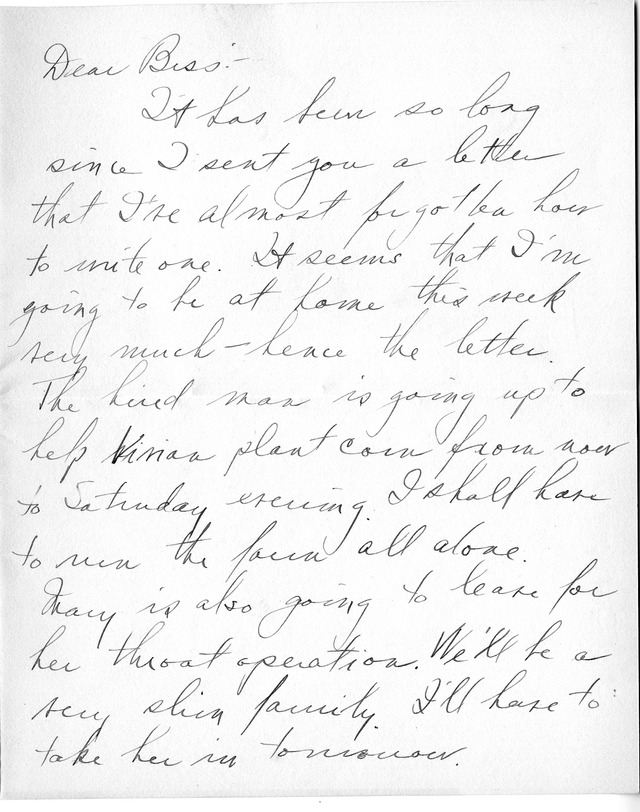 Dear Bess:-
It has been so long
since I sent you a letter
that I've almost forgotten how
to write one. It seems that I'm
going to be at home this week
very much - hence the letter.
The hired man is going up to
help Vivian plant corn from now
to Saturday evening. I shall have
to run the farm all alone.
Mary is also going to leave for
her throat operation. We'll be a
very slim family. I'll have to
take her in tomorrow.